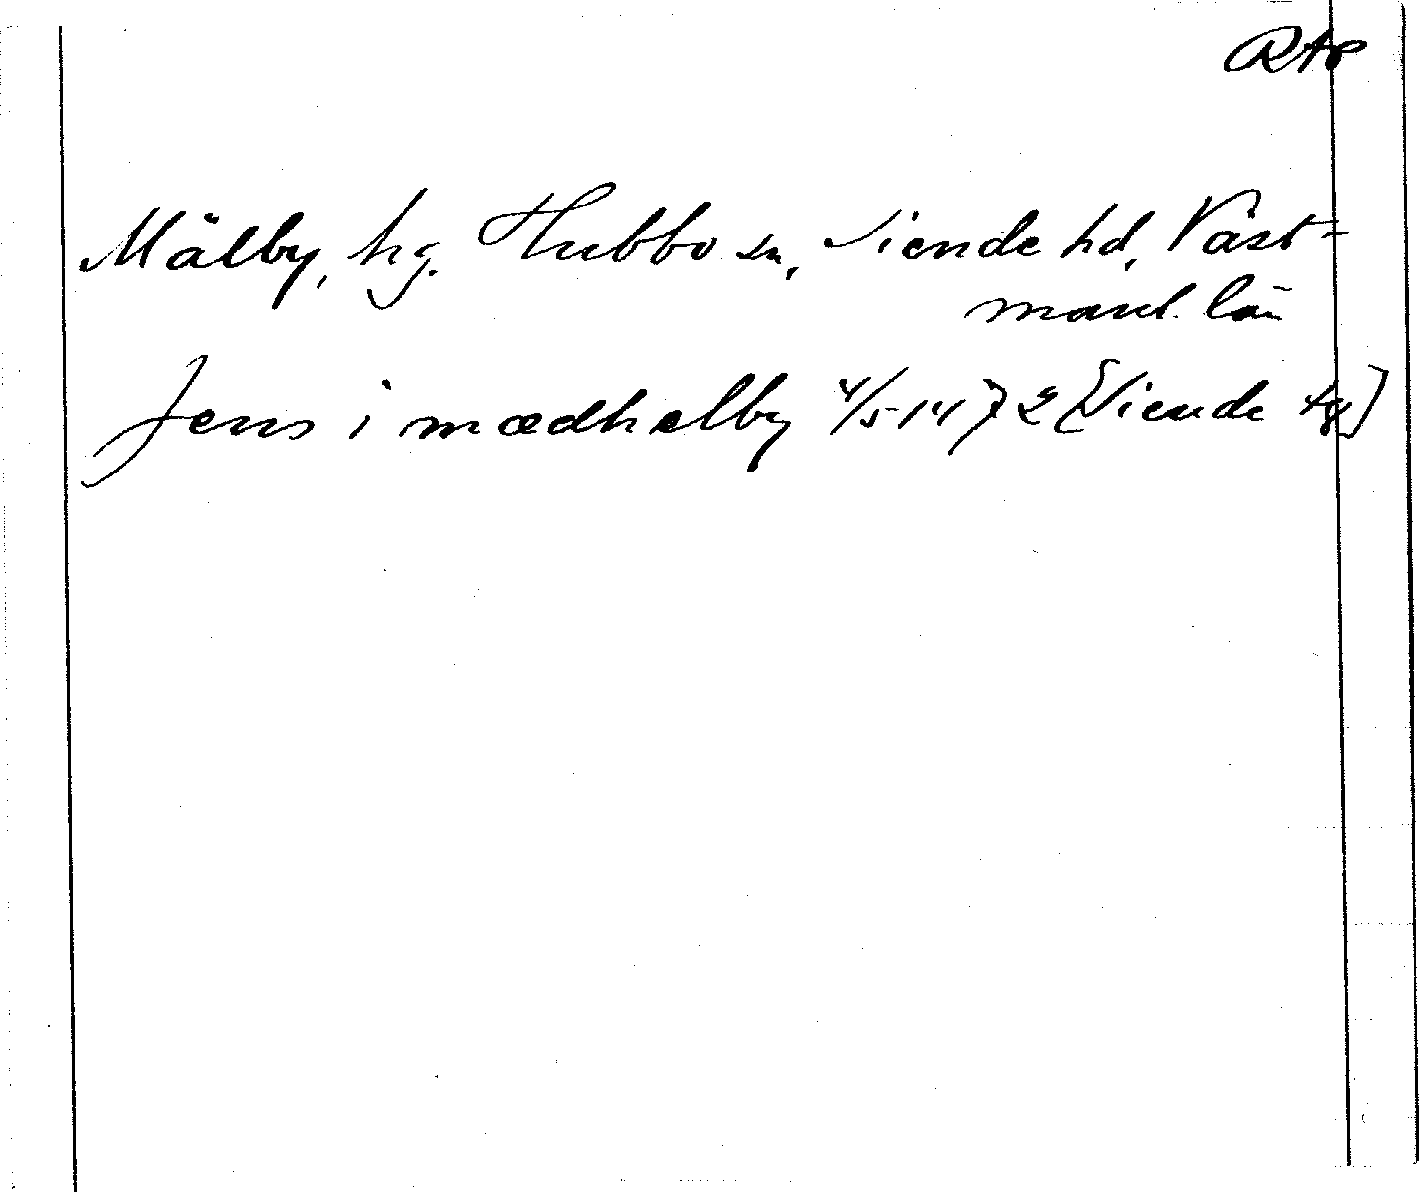 RAp
Mälby, hg. Hubbo sn, Siende hd, Väst-
manl. län
Jens i mædhelby 4/5 1472 [Siende tg]